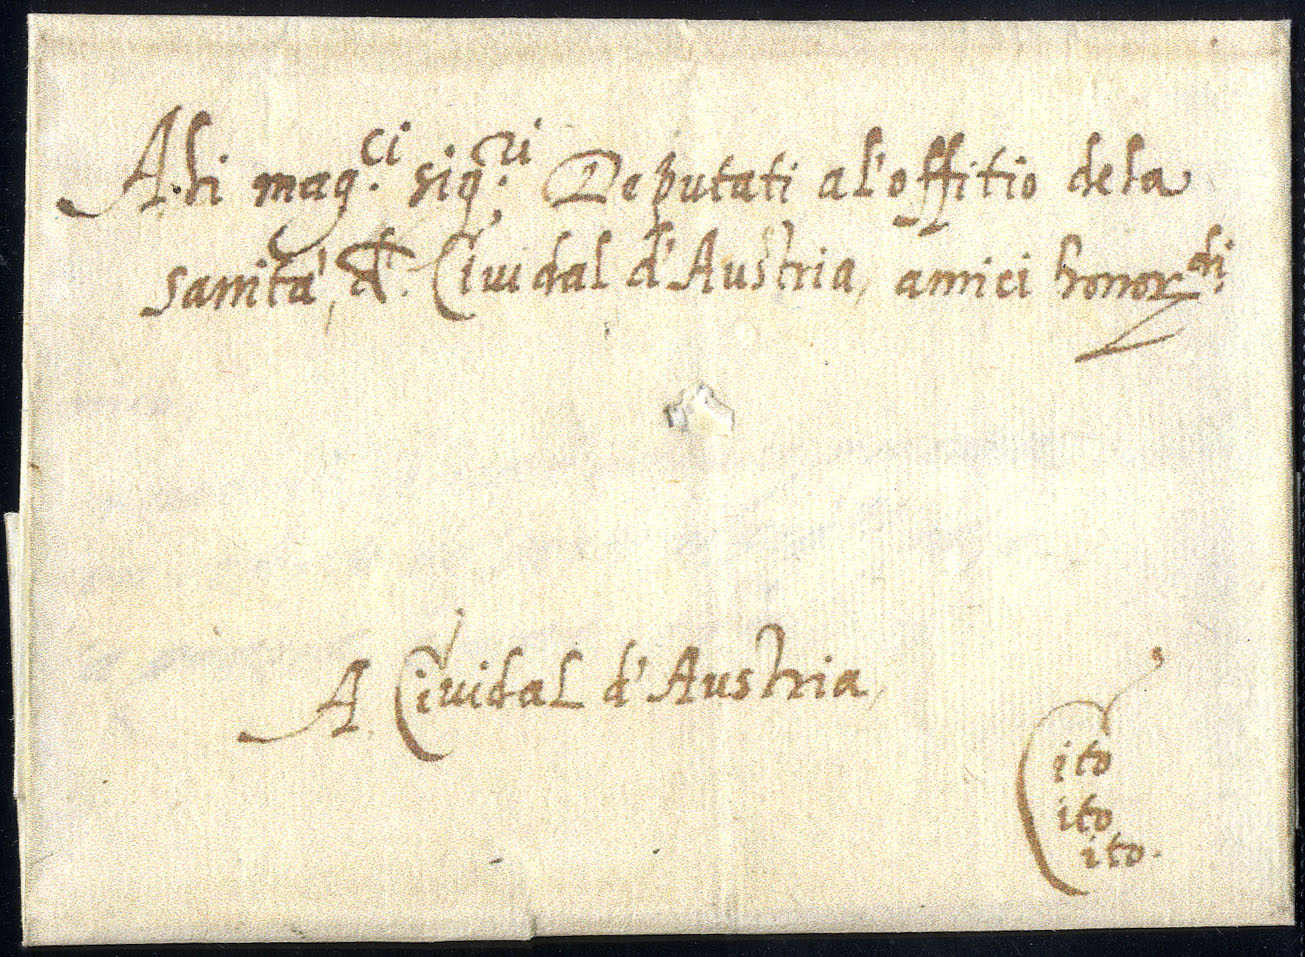 A. li mag.ci sig.ri Deputati al'offitio dela
sanità, d. Cividal d'Austria, amici honor.di
A. Cividal d'Austria,
Cito
ito
ito.